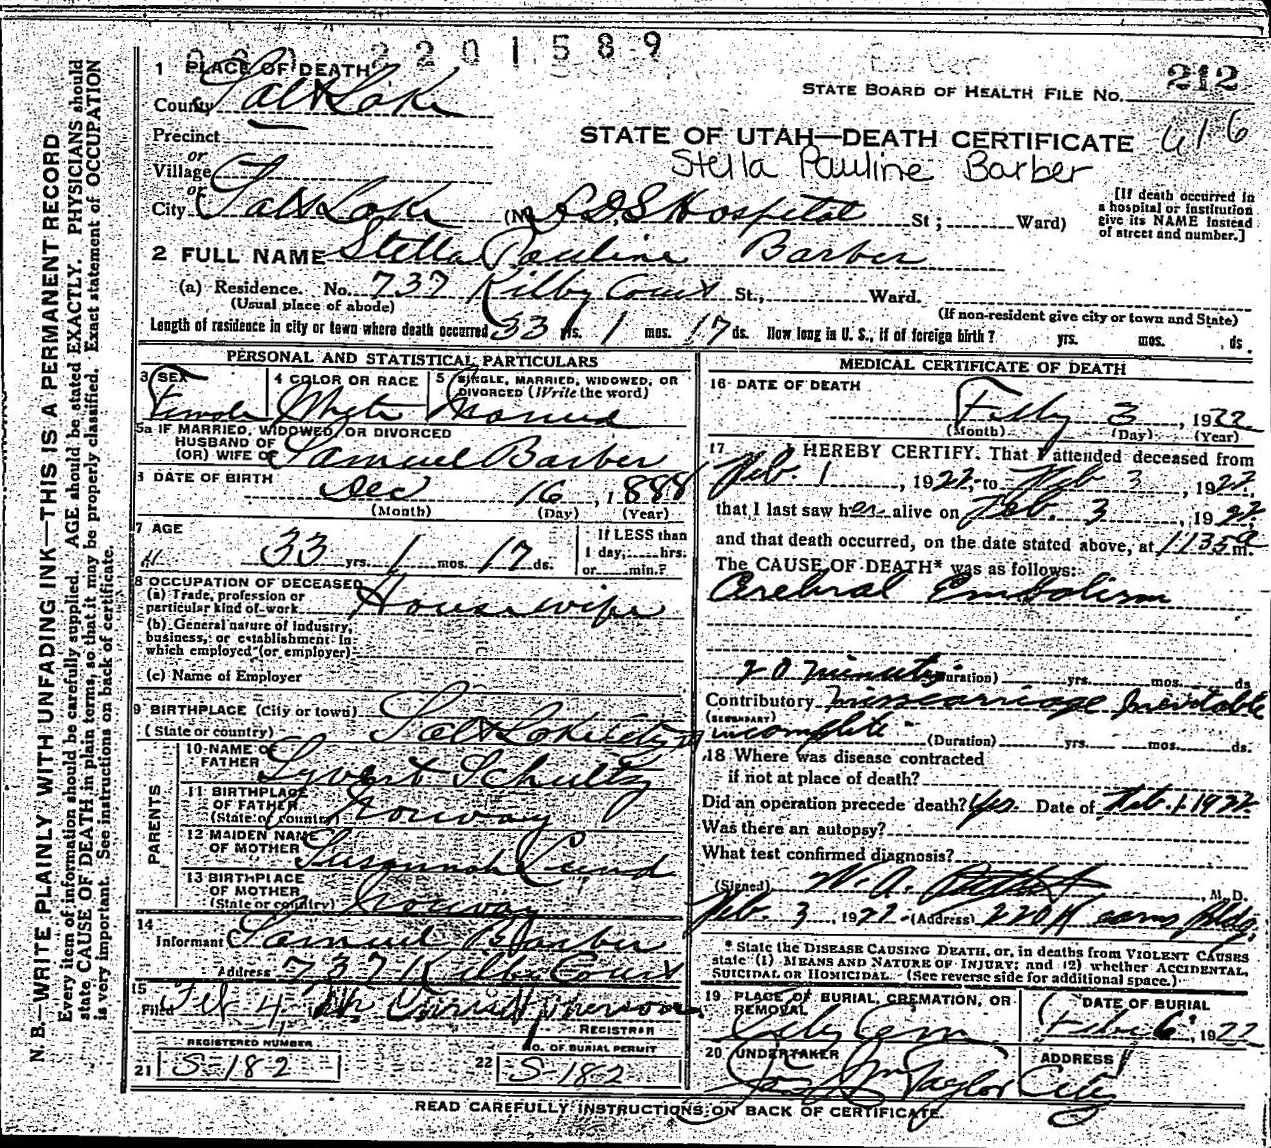 2201589
Barber
1 PLACE OF DEATH
County Salt Lake
STATE BOARD OF HEALTH FILE NO. 212
Precinct
STATE OF UTAH—DEATH CERTIFICATE 616
or
Village
Stella Pauline Barber
or
City Salt Lake (No. L D S Hospital St; Ward)
[If death occurred in a hospital or institution give its NAME instead of street and number.]
2 FULL NAME Stella Pauline Barber
(a) Residence. No. 737 Kilby Court St., Ward.
(Usual place of abode) (If non-resident give city or town and State)
Length of residence in city or town where death occurred 33 yrs. 1 mos. 17 ds. How long in U. S., if of foreign birth? yrs. mos. ds.
PERSONAL AND STATISTICAL PARTICULARS
3 SEX Female
4 COLOR OR RACE White
5 SINGLE, MARRIED, WIDOWED, OR DIVORCED (Write the word) Married
5a IF MARRIED, WIDOWED, OR DIVORCED
HUSBAND OF
(OR) WIFE OF Samuel Barber
6 DATE OF BIRTH
Dec 16, 1888
(Month) (Day) (Year)
7 AGE
33 yrs. 1 mos. 17 ds.
If LESS than
1 day, hrs.
or min.?
8 OCCUPATION OF DECEASED
(a) Trade, profession or
particular kind of work Housewife
(b) General nature of industry,
business, or establishment in
which employed (or employer)
(c) Name of Employer
9 BIRTHPLACE (City or town)
(State or country) Salt Lake City
PARENTS
10 NAME OF
FATHER Schultz
11 BIRTHPLACE
OF FATHER
(State or country) Norway
12 MAIDEN NAME
OF MOTHER Susannah Lund
13 BIRTHPLACE
OF MOTHER
(State or country) Norway
14
Informant Samuel Barber
Address 737 Kilby Court
15
Filed Feb 4,
REGISTRAR
REGISTERED NUMBER
NO. OF BURIAL PERMIT
21 S-182
22 S-182
MEDICAL CERTIFICATE OF DEATH
16 DATE OF DEATH
3, 1922
(Month) (Day) (Year)
17 I HEREBY CERTIFY, That I attended deceased from
Feb. 1, 1922, to Feb 3, 1922,
that I last saw her alive on Feb. 3, 1922
and that death occurred, on the date stated above, at 1135a m.
The CAUSE OF DEATH* was as follows:
Cerebral Embolism
20 minutes (Duration) yrs. mos. ds
Contributory Miscarriage Inevitable
(SECONDARY)
incomplete (Duration) yrs. mos. ds.
18 Where was disease contracted
if not at place of death?
Did an operation precede death? Yes Date of Feb. 1. 1922
Was there an autopsy?
What test confirmed diagnosis?
(Signed) W. A. M. D.
Feb. 3, 1922 (Address) Bldg.
* State the DISEASE CAUSING DEATH, or, in deaths from VIOLENT CAUSES
state (1) MEANS AND NATURE OF INJURY; and (2) whether ACCIDENTAL,
SUICIDAL OR HOMICIDAL. (See reverse side for additional space.)
19 PLACE OF BURIAL, CREMATION, OR
REMOVAL
City Cem
DATE OF BURIAL
6, 1922
20 UNDERTAKER
Taylor
ADDRESS
City
READ CAREFULLY INSTRUCTIONS ON BACK OF CERTIFICATE.
N. B.—WRITE PLAINLY WITH UNFADING INK—THIS IS A PERMANENT RECORD
Every item of information should be carefully supplied. AGE should be stated EXACTLY. PHYSICIANS should
state CAUSE OF DEATH in plain terms, so that it may be properly classified. Exact statement of OCCUPATION
is very important. See instructions on back of certificate.